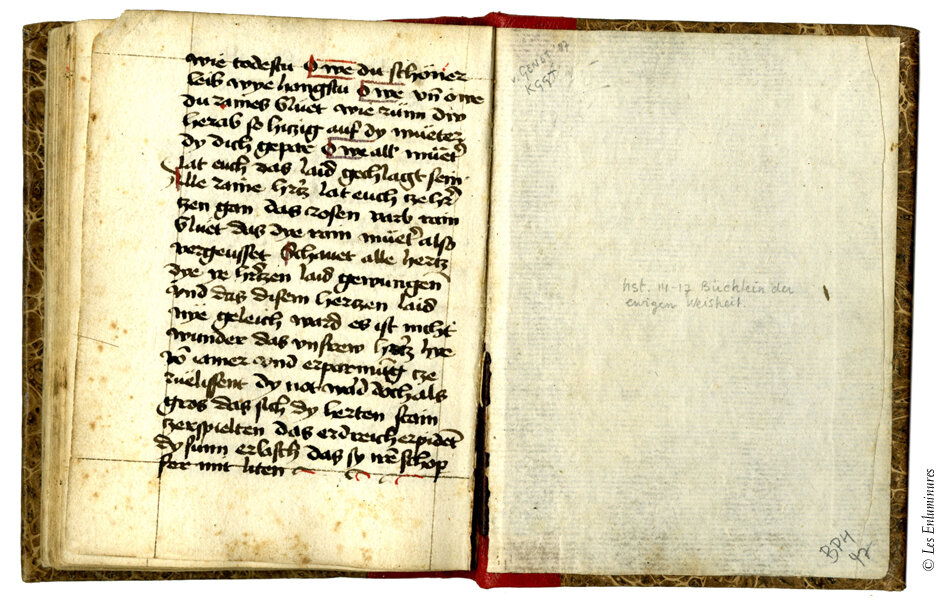 wie todestu O we du schöner
leib wye hangstu O we vn̄ owe
du raines bluet wie rünn div
herab so hiczig auf dy mueter
dy dich gepar O we all muet̄
lat euch das laid gechlagt sein
Alle raine hr̄cz lat euch cze hr̄
czen gan das rosen varb rain
bluet das dye rain muet̄ also
vergeusset Schauet alle hertz
dye ye hr̄czen laid gewungen̄
vnd das disem herczen laid
nye geleich ward es ist nicht
wunder das vnsrew hr̄cz hye
vō iamer vnd erparmūg cze
rüelissent dy not ward doch als
gros das sich dy herten stain
zerspielten das erdreich erpidet̄
dy sunn erlasch das sy irē schop
fer mit liten
GENT '97
hst. 14-17 Büchlein der
ewigen Weisheit.
BPH
97
© Les Enluminures